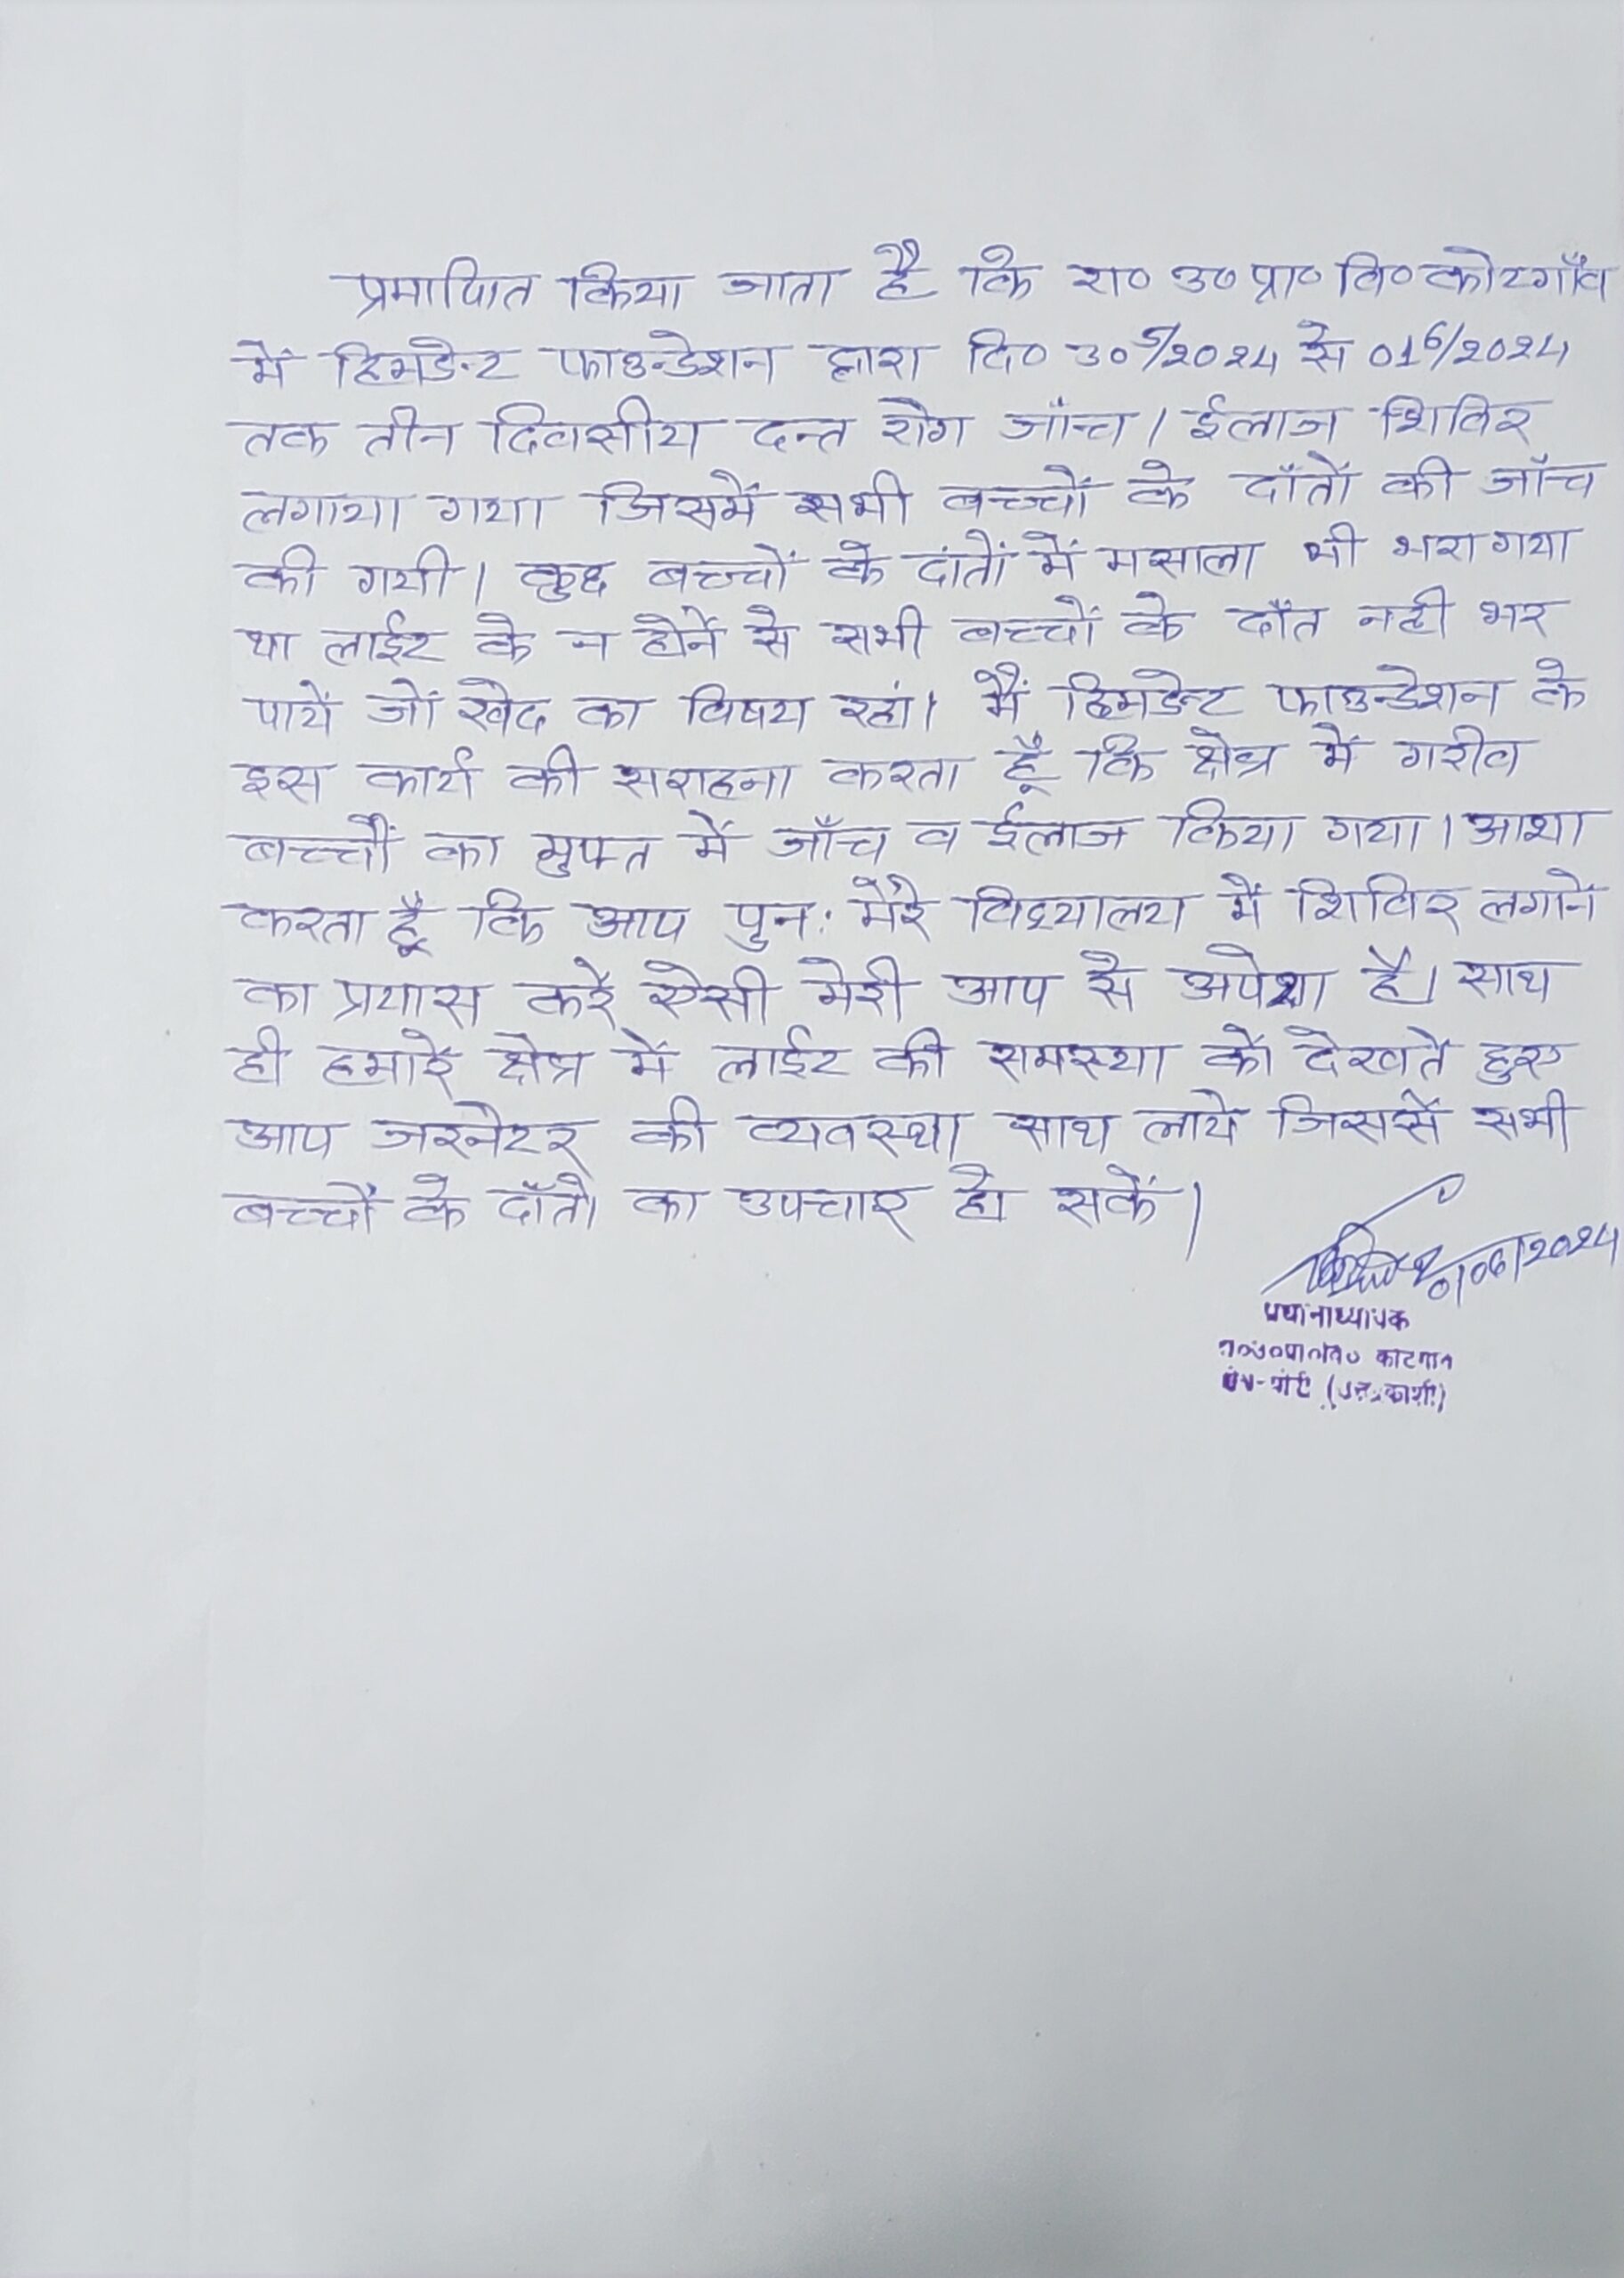 प्रमाणित किया जाता है कि रा० उ० प्रा० वि० कोटगाँव
में हिमडेन्ट फाउन्डेशन द्वारा दि० 30 5/2024 से 01 6/2024
तक तीन दिवसीय दन्त रोग जाँच / ईलाज शिविर
लगाया गया जिसमें सभी बच्चों के दाँतों की जाँच
की गयी। कुछ बच्चों के दांतों में मसाला भी भरा गया
था लाईट के न होनें से सभी बच्चों के दाँत नही भर
पायें जों खेद का विषय रहां। मैं हिमडेन्ट फाउन्डेशन के
इस कार्य की सराहना करता हूँ कि क्षेत्र में गरीब
बच्चों का मुफ्त में जाँच व ईलाज किया गया। आशा
करता हूँ कि आप पुन: मेरे विद्यालय में शिविर लगानें
का प्रयास करें ऐसी मेरी आप से अपेक्षा है। साथ
ही हमारें क्षेत्र में लाईट की समस्या कों देखतें हुए
आप जरनेटर की व्यवस्था साथ लायें जिससें सभी
बच्चों के दाँतो का उपचार हो सकें।
01/06/2024
प्रधानाध्यापक
रा०उ०प्रा०वि० कोटगांव
(उत्तरकाशी)